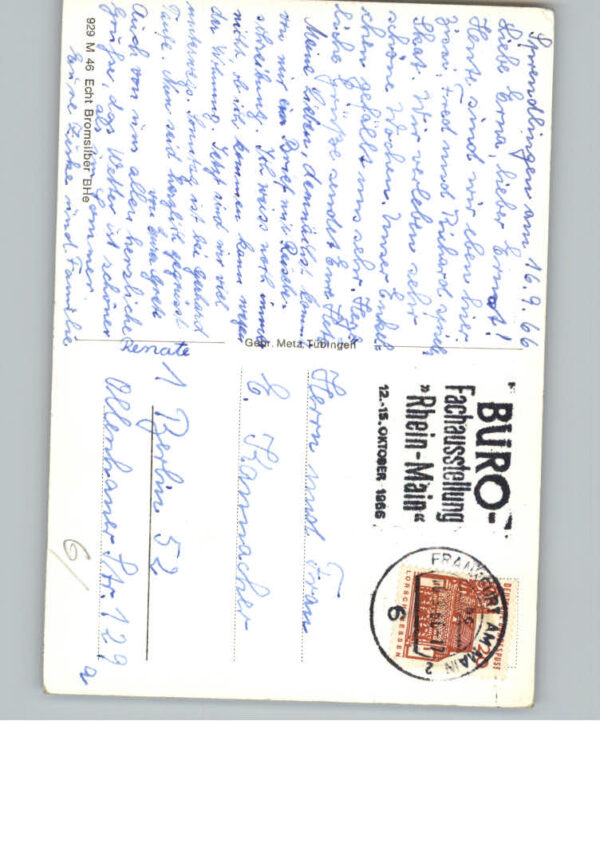 Sprendlingen am 16.9.66
Liebe Erna, lieber Ernst!
Heute sind wir eben hier
Fred und Richard sind
Wir verleben sehr
schöne Wochen. Unser Enkel-
chen gefällt uns sehr. Herz-
liche Grüße sendet Eure
Meine Lieben, demnächst kommt
von mir ein Brief mit
Ich weiss noch immer
nicht, ob ich kommen kann wegen
der Wohnung. Jetzt sind wir viel
unterwegs. Sonntag ist bei Gerhard
Taufe. Nun seid herzlich gegrüsst
von Eurer
Auch von uns allen herzliche
Grüße, das Wetter ist schöner
als im Sommer.
Eure und Familie
Renate
929 M 46 Echt Bromsilber BHe
Gebr. Metz, Tübingen
BÜRO-
Fachausstellung
»Rhein-Main«
12.-15. OKTOBER 1966
FRANKFURT AM MAIN 2
6
DEUTSCHE BUNDESPOST
20
LORSCH HESSEN
Herrn und Frau
E.
1 Berlin 52
Str. 129
a
6/